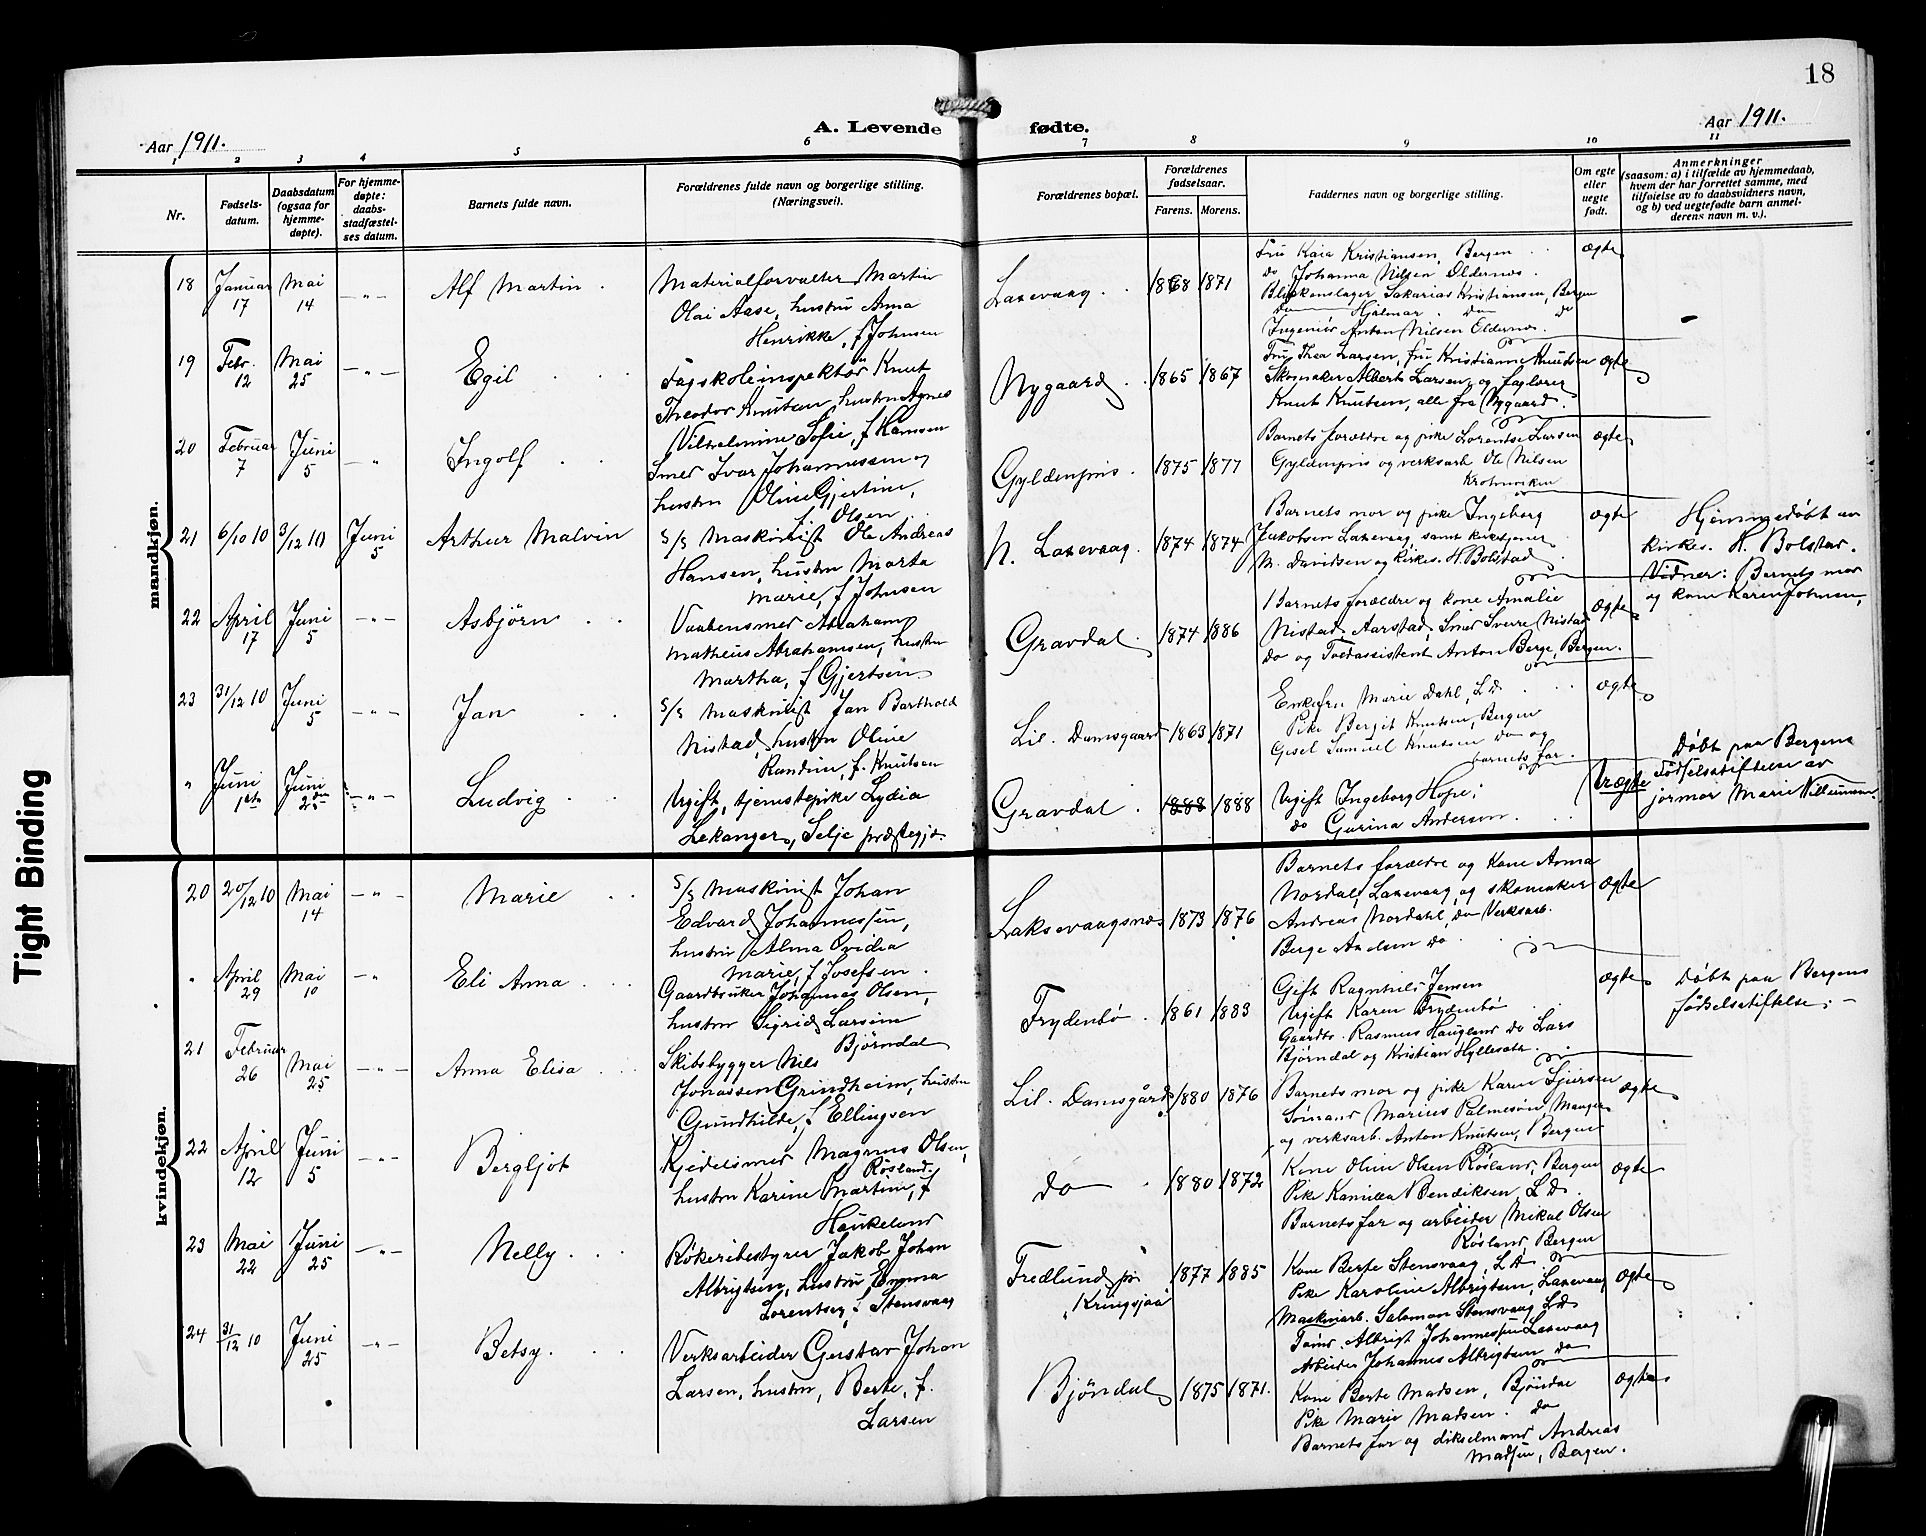 18
A. Levende fødte.
Aar 1911.
Aar 1911.
1 2 3 4 5 6 7 8 9 10 11
Nr.
Fødsels-
datum.
Daabsdatum
(ogsaa for
hjemme-
døpte).
For hjemme-
døpte:
daabs-
stadfæstel-
ses datum.
Barnets fulde navn.
Forældrenes fulde navn og borgerlige stilling.
(Næringsvei).
Forældrenes bopæl.
Forældrenes
fødselsaar.
Farens. Morens.
Faddernes navn og borgerlige stilling.
Om egte
eller
uegte
født.
Anmerkninger
(saasom: a) i tilfælde av hjemmedaab,
hvem der har forrettet samme, med
tilføielse av to daabsvidners navn,
og b) ved uegtefødte barn anmel-
derens navn m. v.).
mandkjøn.
18 Januar 17 Mai 14 — " — Alf Martin
Materialforvalter Martin
Olai Aase, hustru Anna
Henrikke, f Johnsen
Laxevaag. 1868 1871
Fru Kaia Kristiansen, Bergen
do Johanna Nilsen Eldernes.
Blikkenslager Sakarias Kristiansen, Bergen
do Hjalmar do do
Ingeniör Anton Nilsen Eldernes.
ægte
19 Febr. 12 Mai 25 — " — Egil
Fagskoleinspektör Knut
Theodor Knutsen, hustru Agnes
Vilhelmine Sofie, f Hansen
Nygaard 1865 1867
Fru Thea Larsen, fru Kristianne Knudsen
Skomaker Albert Larsen og faglærer
Knut Knutsen, alle fra Nygaard.
ægte
20 Februar 7 Juni 5 — " Ingolf
Smed Ivar Johannessen og
hustru Oline Gjertine,
f Olsen
Gyldenpris. 1875 1877
Barnets forældre og pike Lorentse Larsen
Gyldenpris og verksarb Ole Nilsen
ægte
21 6/10 10 3/12 10 Juni 5 Arthur Malvin
S/S Maskinist Ole Andreas
Hansen, hustru Marta
Marie, f Johnsen
N. Laxevaag. 1874 1874
Barnets mor og pike Ingeborg
Jakobsen Laxevaag samt kirketjener
M. Davidsen og kirkes. H. Bolstad.
ægte
Hjemmedöbt av
kirkes. H. Bolstad.
Vidner: Barnets mor
og kone Karen Johnsen,
22 April 17 Juni 5 — " — Asbjörn
Vaabensmed Abraham
Matheus Abrahamsen, hustru
Martha, f Gjertsen
Gravdal. 1874 1886
Barnets forældre og kone Amalie
Nistad, Aarstad, Smed Sverre Nistad
do og Toldassistent Anton Berge, Bergen.
ægte
23 31/12 10 Juni 5 — " — Jan
S/S Maskinist Jan Barthold
Nistad, hustru Oline
Randine f. Knutsen
Lil. Damsgaard 1863 1871
Enkefru Marie Dahl, L D
Pike Bergit Knutsen, Bergen
Samuel Knutsen do og
barnets far.
ægte
" Juni 1ste Juni 25de — " — Ludvig
Ugift, tjenestepike Lydia
Lekanger, Selje præstegj.
Gravdal. 1888 1888
Ugift Ingeborg Hope;
do Gurina Andersen.
Uægte
Döbt paa Bergens
Födselsstiftelse av
jormor Marie Villumsen
kvindekjøn.
20 20/12 10 Mai 14 — " — Marie
S/S Maskinist Johan
Edvard Johannessen,
hustru Alma Ovidia
Marie, f Josefsen.
Laksevaagsnes 1873 1876
Barnets forældre og kone Anna
Nordal, Laxevaag, og skomaker
Andreas Nordahl, do Verksarb.
Berge Andsen do
ægte
" April 29 Mai 10 — " Eli Anna
Gaardbruker Johannes Olsen,
hustru Sigrid Larsine
Björndal
Frydenbö. 1861 1883
Gift Ragnhild Jensen
Ugift Karen Frydenbö
Gaardb. Rasmus Haugland do Lars
Björndal og Kristian Hyllesæth.
ægte
Döbt paa Bergens
födselsstiftelse. —
21 Februar 26 Mai 25 — " — Anna Elisa
Skibsbygger Nils
Jonassen Grindheim, hustru
Gundhilde, f Ellingsen
Lil. Damsgård 1880 1876
Barnets mor og pike Karen Sjursen
Sömand Marius Palmesen, Manger
og verksarb. Anton Knutsen, Bergen
ægte
22 April 12 Juni 5 — " — Bergljot
Kjedelsmed Magnus Olsen,
Røsland.
hustru Karine Martine, f
Haukeland
do 1880 1872
Kone Oline Olsen Røsland, Bergen
Pike Kamilla Bendiksen, L D.
Barnets far og arbeider Mikal Olsen
Røsland, Bergen
ægte
23 Mai 22 Juni 25 — " — Nelly
Røkeribestyrer Jakob Johan
Albrigtsen, hustru Emma
Lorentse, f Stensvaag
Fredlund pr
Kringsjaa 1877 1885
Kone Berte Stensvaag, L D.
Pike Karoline Albrigtsen, Laxevaag
Maskinarb. Salomon Stensvaag L D
Tömr. Albrigt Johannessen Laxevaag
Arbeider Johannes Albrigtsen do
ægte
24 31/12 10 Juni 25 — " — Betsy
Verksarbeider Gustav Johan
Larsen, hustru, Berte, f.
Larsen
Bjöndal 1875 1871.
Kone Berte Madsen, Bjöndal
Pike Marie Madsen. do
Barnets far og dikselmand Andreas
Madsen, Bergen.
ægte
Tight Binding